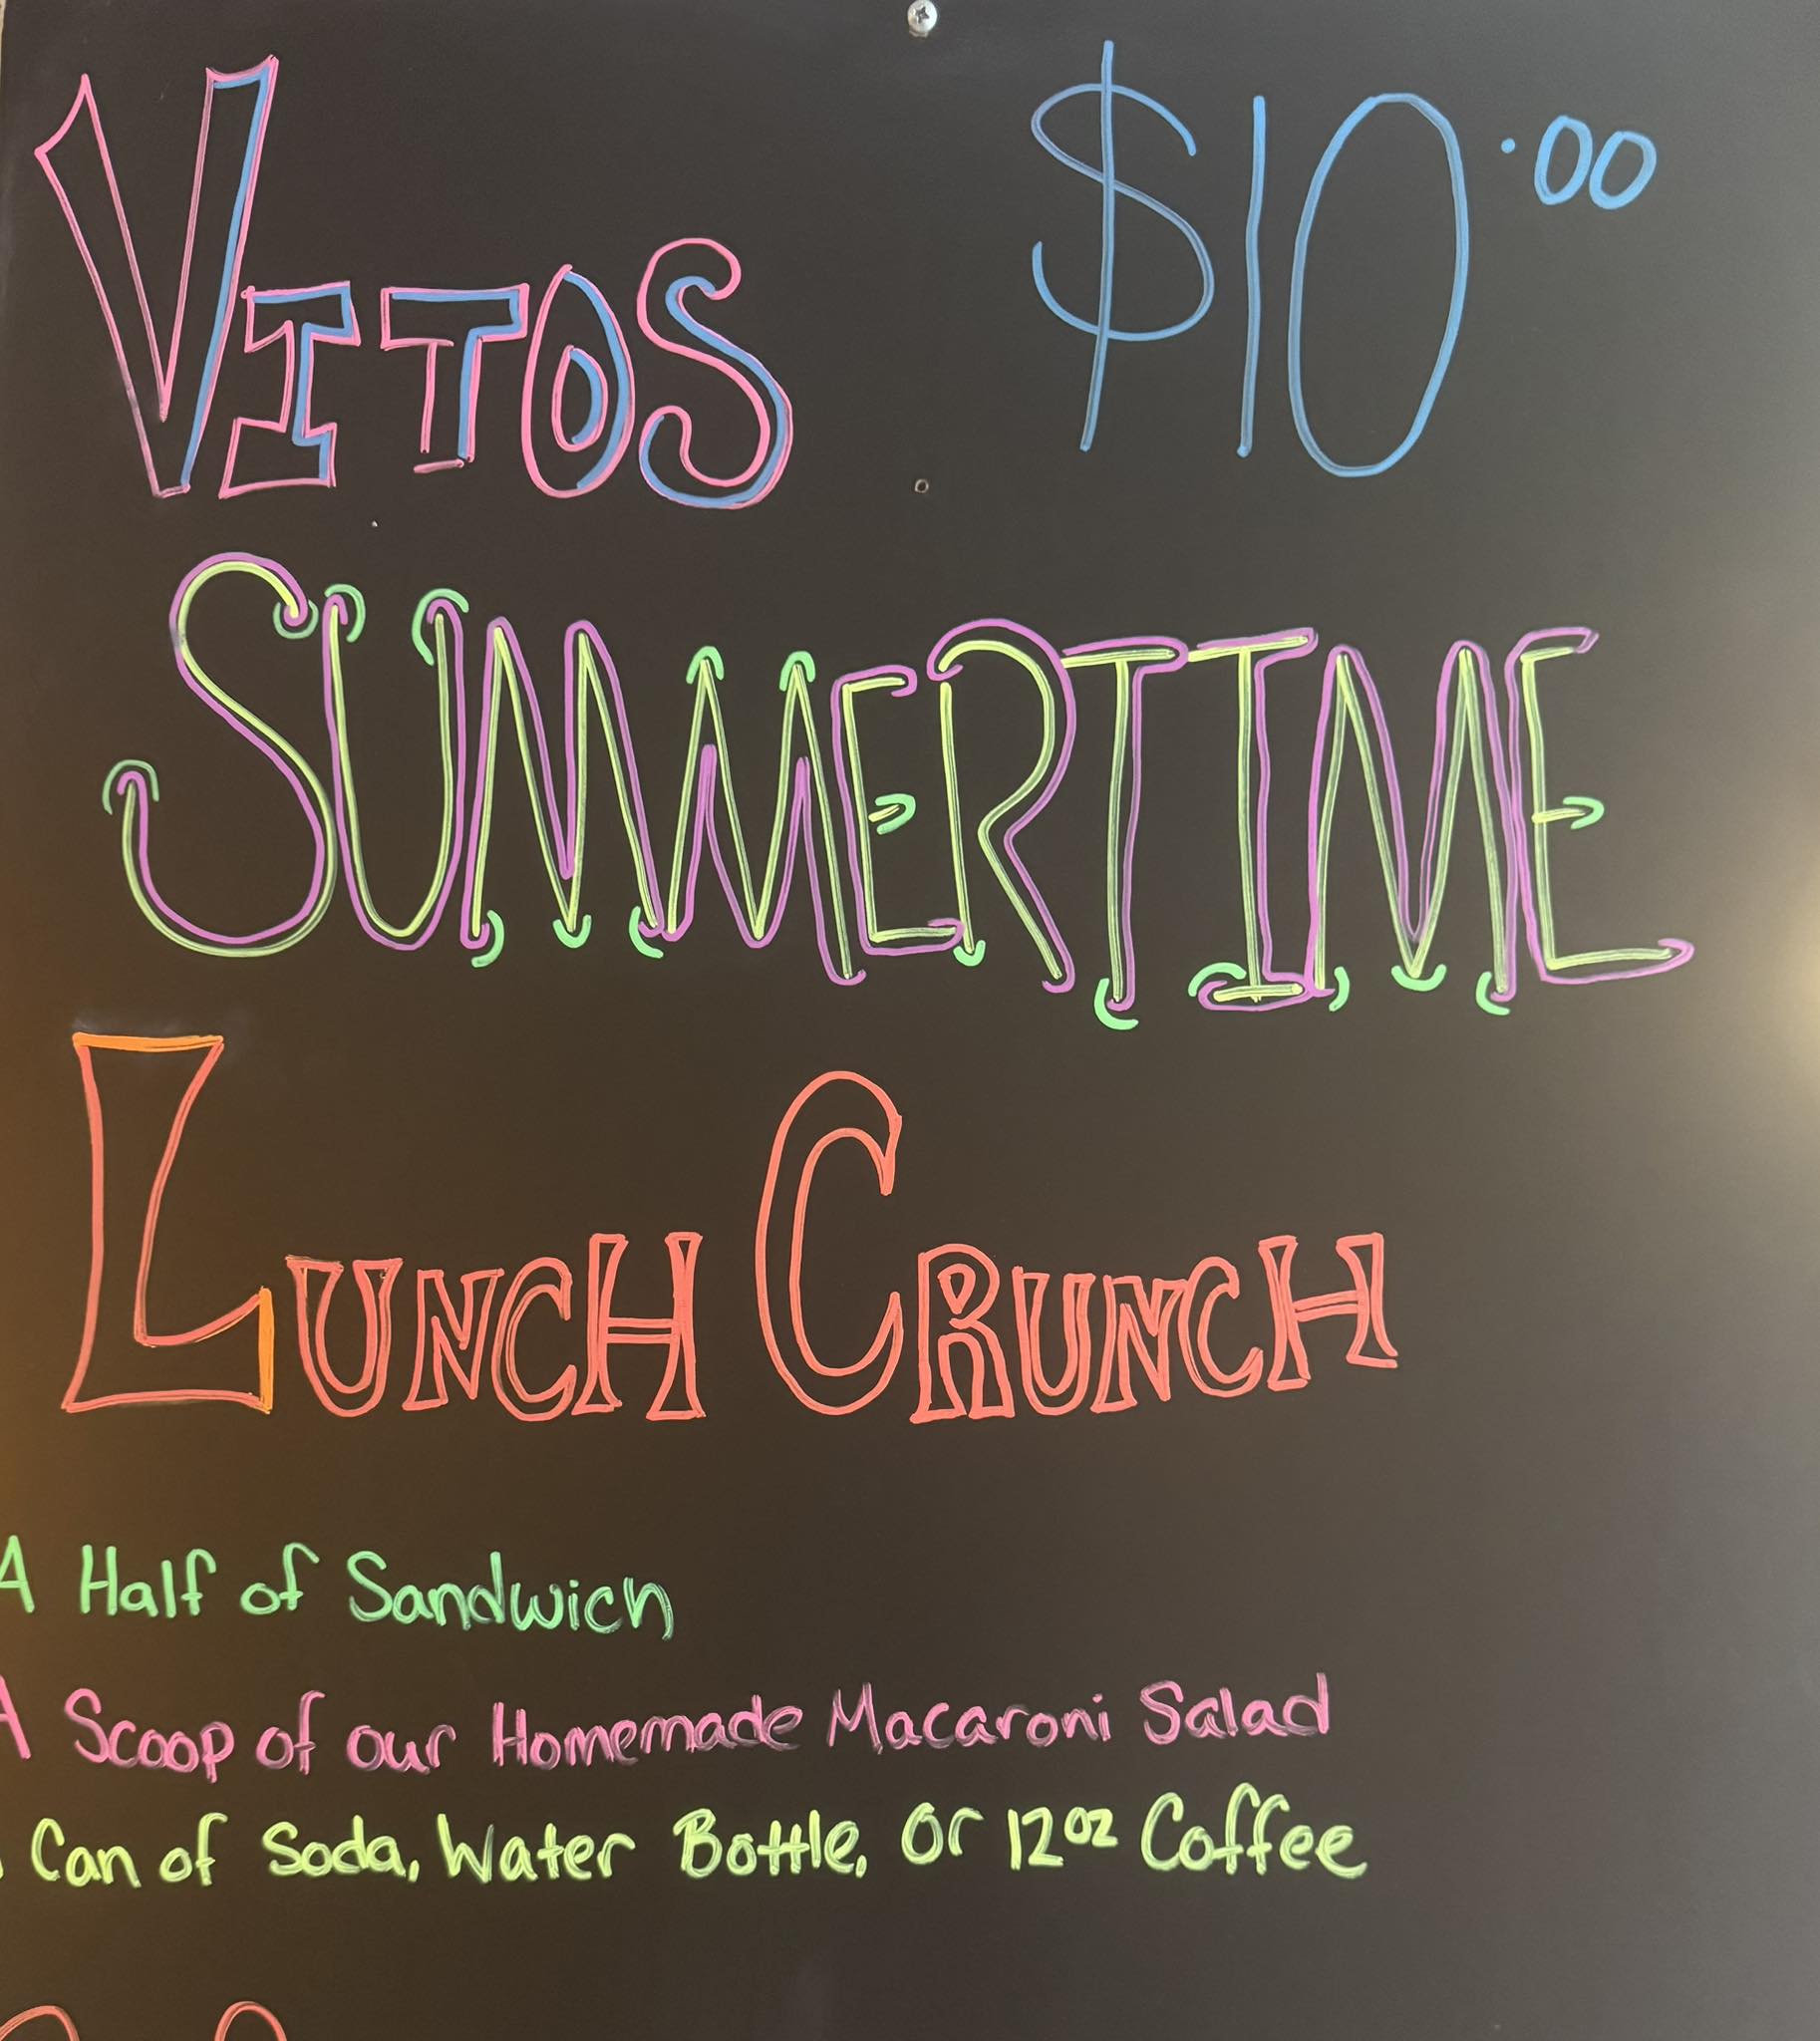 VITOS $10.00
SUMMERTIME
LUNCH CRUNCH
A Half of Sandwich
A Scoop of our Homemade Macaroni Salad
Can of Soda, Water Bottle, Or 12oz Coffee